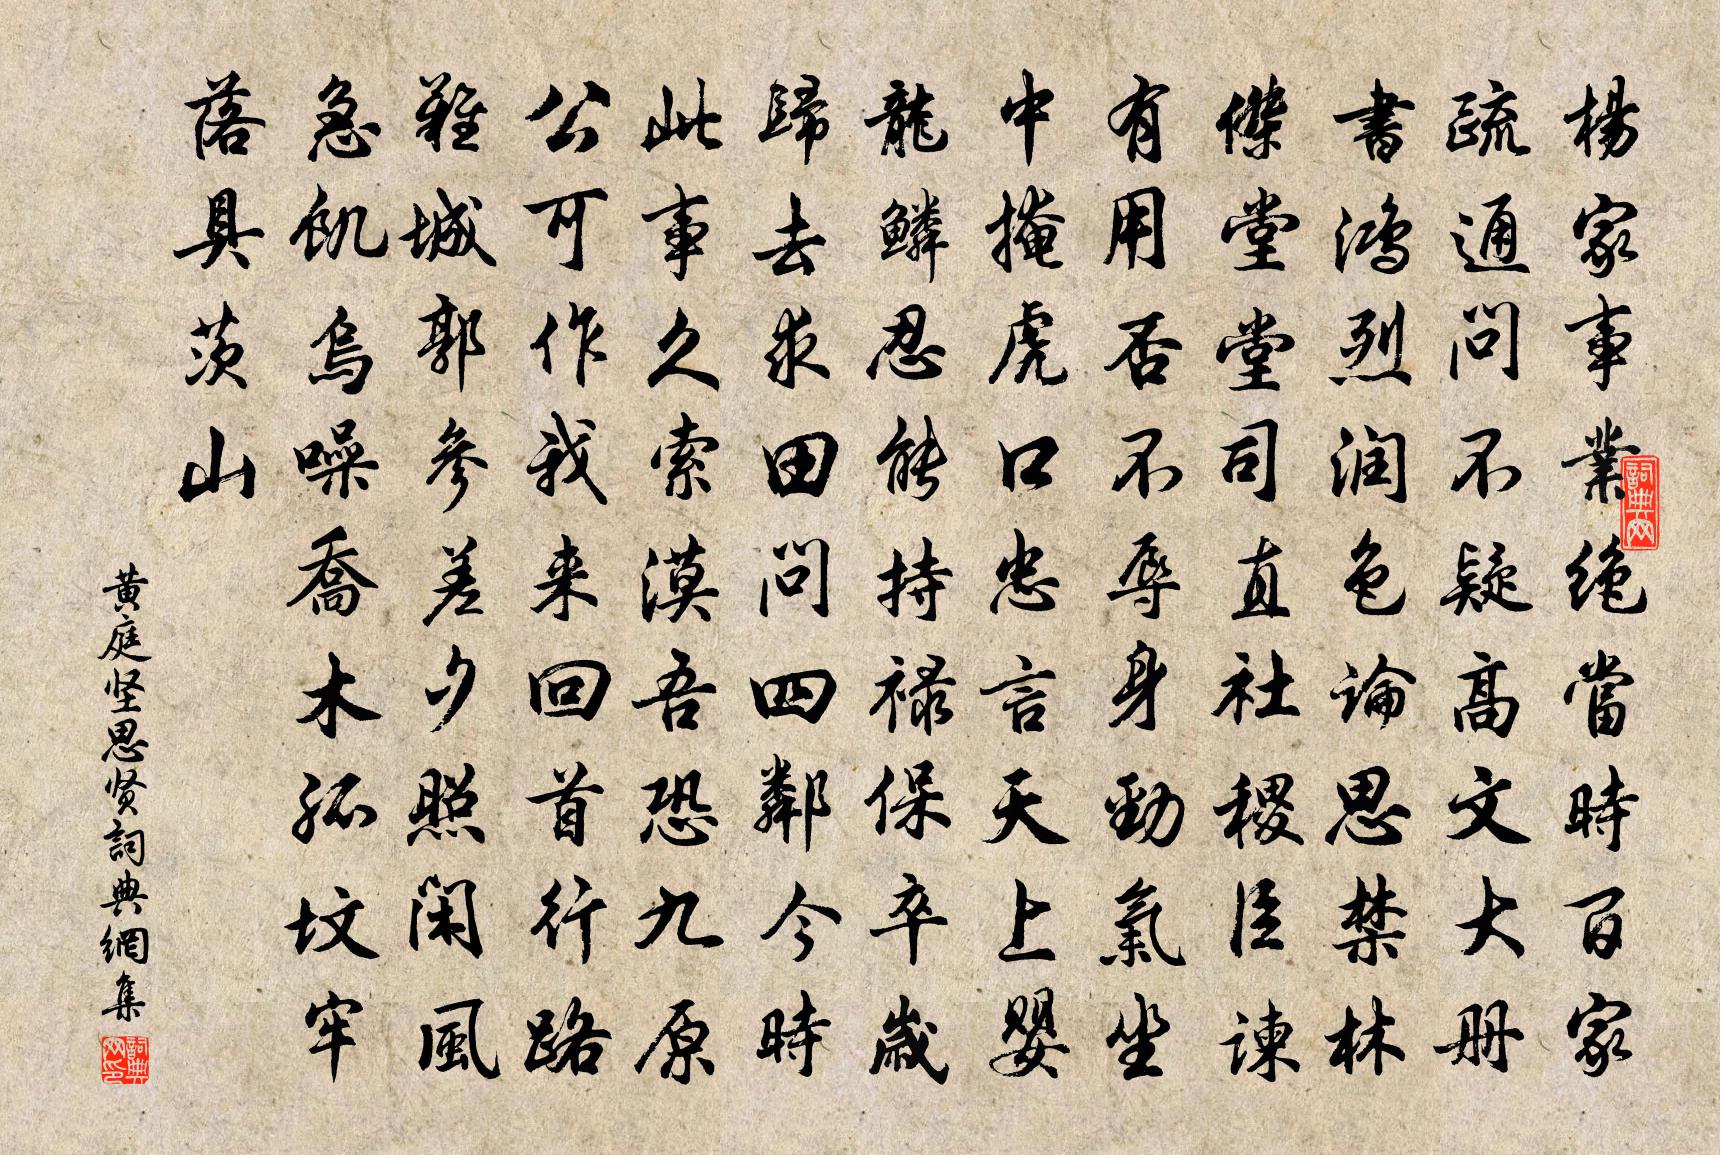 楊家事業绝當時百家
疏通問不疑高文大册
書鴻烈润色論思禁林
傑堂堂司直社稷臣諫
有用否不辱身勁氣坐
中掩虎口忠言天上嬰
龍鱗忍能持禄保卒歲
歸去求田問四鄰今時
此事久索漠吾恐九原
公可作我来回首行路
難城郭參差夕照閑風
急飢烏噪喬木孤坟牢
落具茨山
黄庭坚思贤詞典網集
詞典网
詞典网印